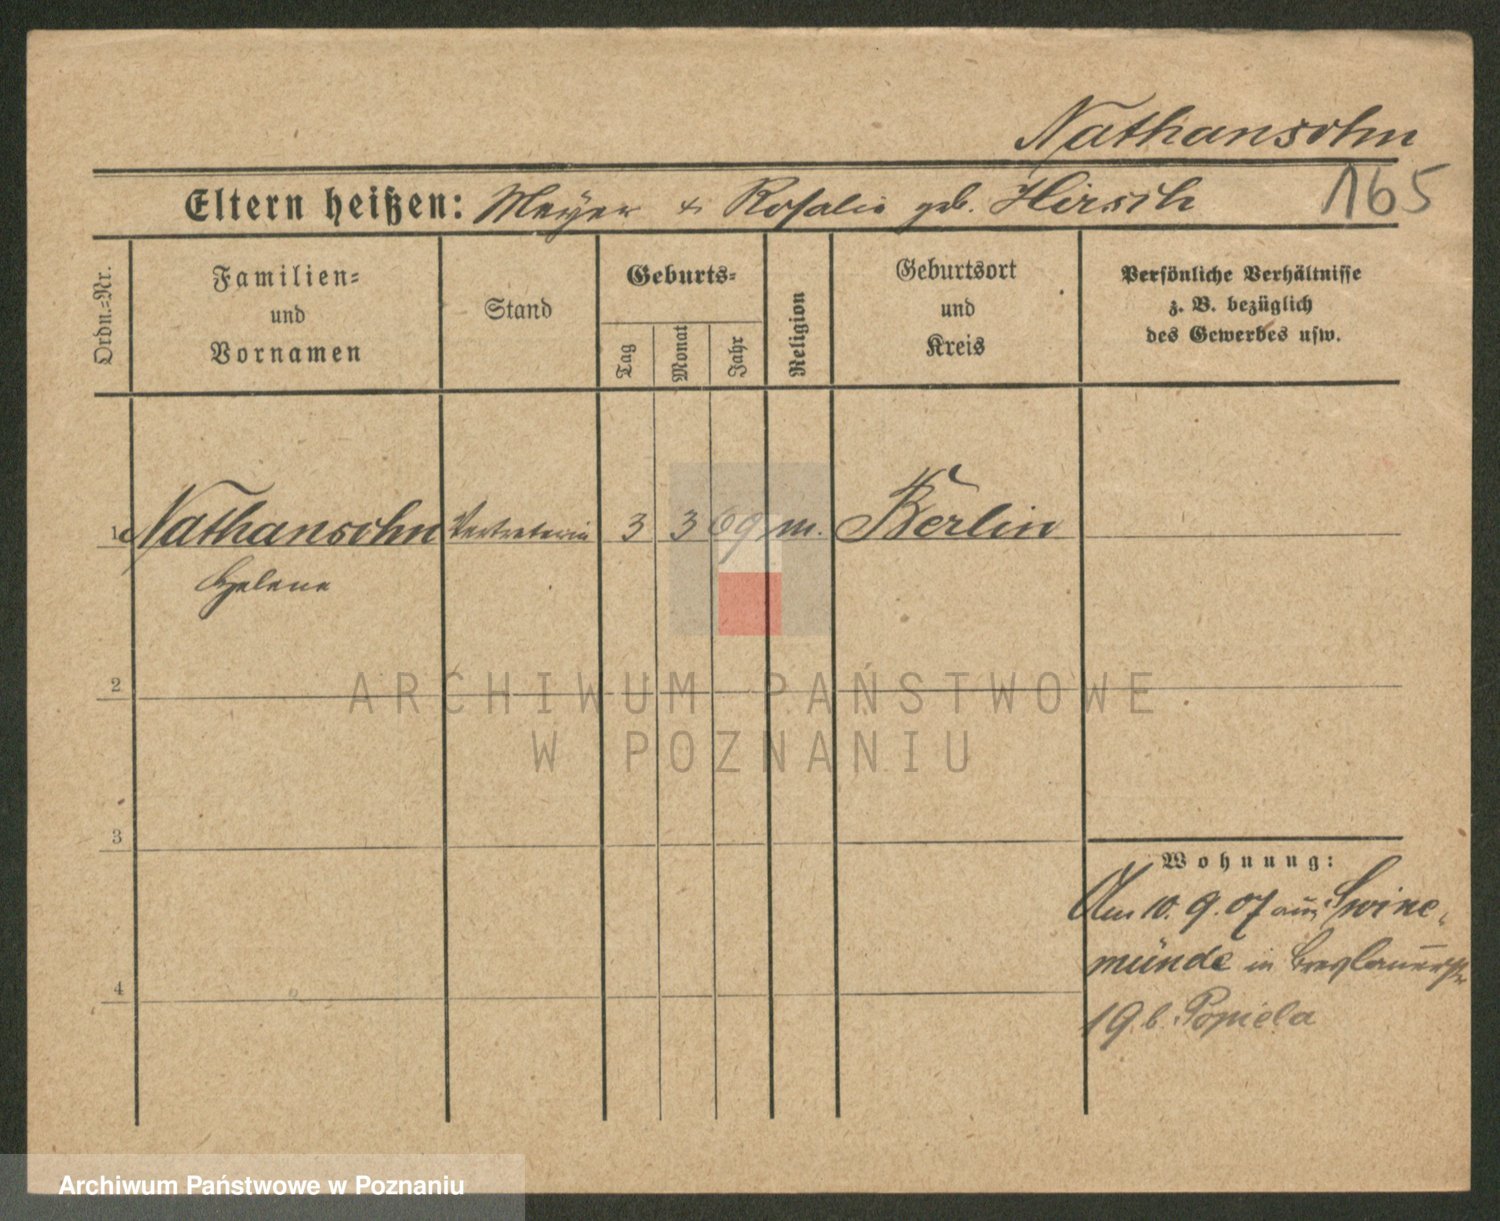 Nathansohn
165
Eltern heißen: Meyer & Rosalie geb. Hirsch
Ordn.=Nr.
Familien=
und
Vornamen
Stand
Geburts=
Tag
Monat
Jahr
Religion
Geburtsort
und
Kreis
Persönliche Verhältnisse
z. B. bezüglich
des Gewerbes usw.
1 Nathansohn Vertreterin 3 3 69 m. Berlin
Helene
2
ARCHIWUM PAŃSTWOWE
W POZNANIU
3
Wohnung:
Am 10.9.07 aus Swine-
münde in Breslauerstr
19 b. Popiela
4
Archiwum Państwowe w Poznaniu